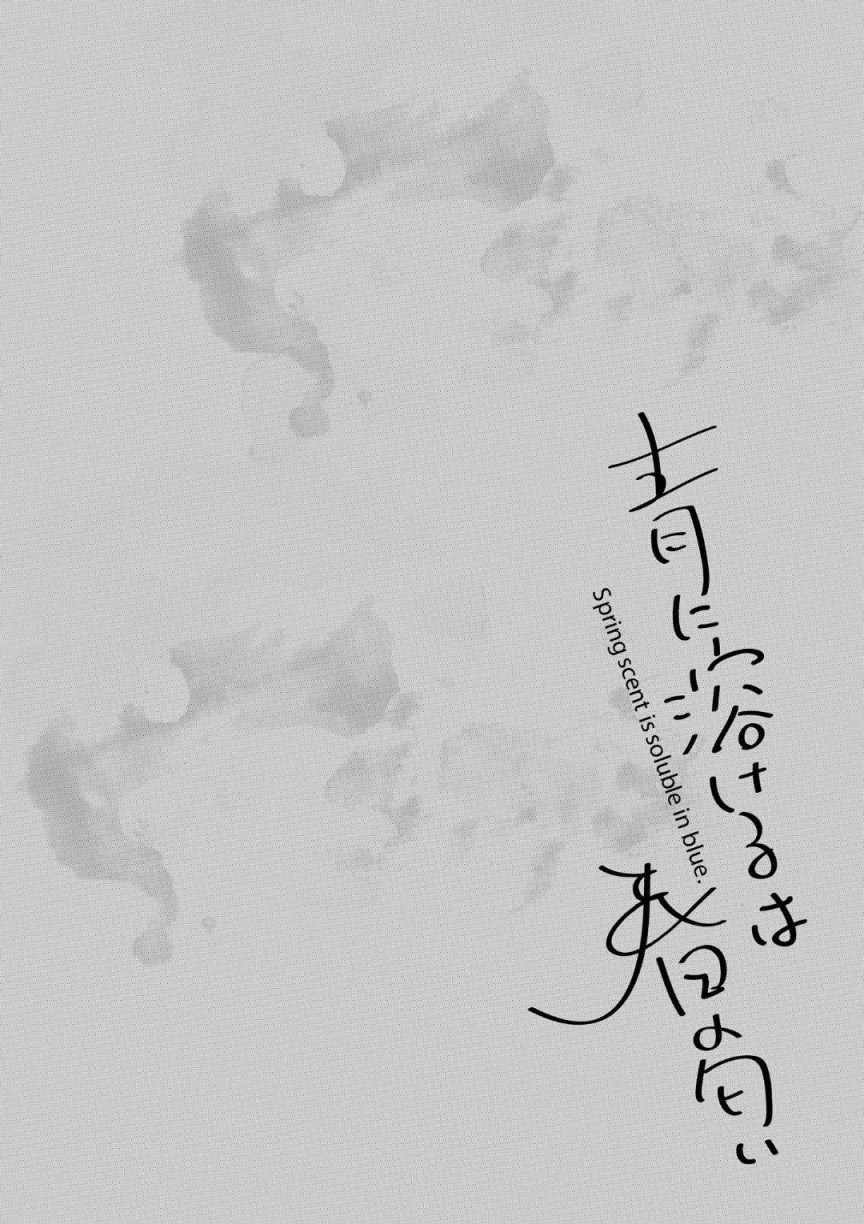 青に溶けるは
春の匂い
Spring scent is soluble in blue.